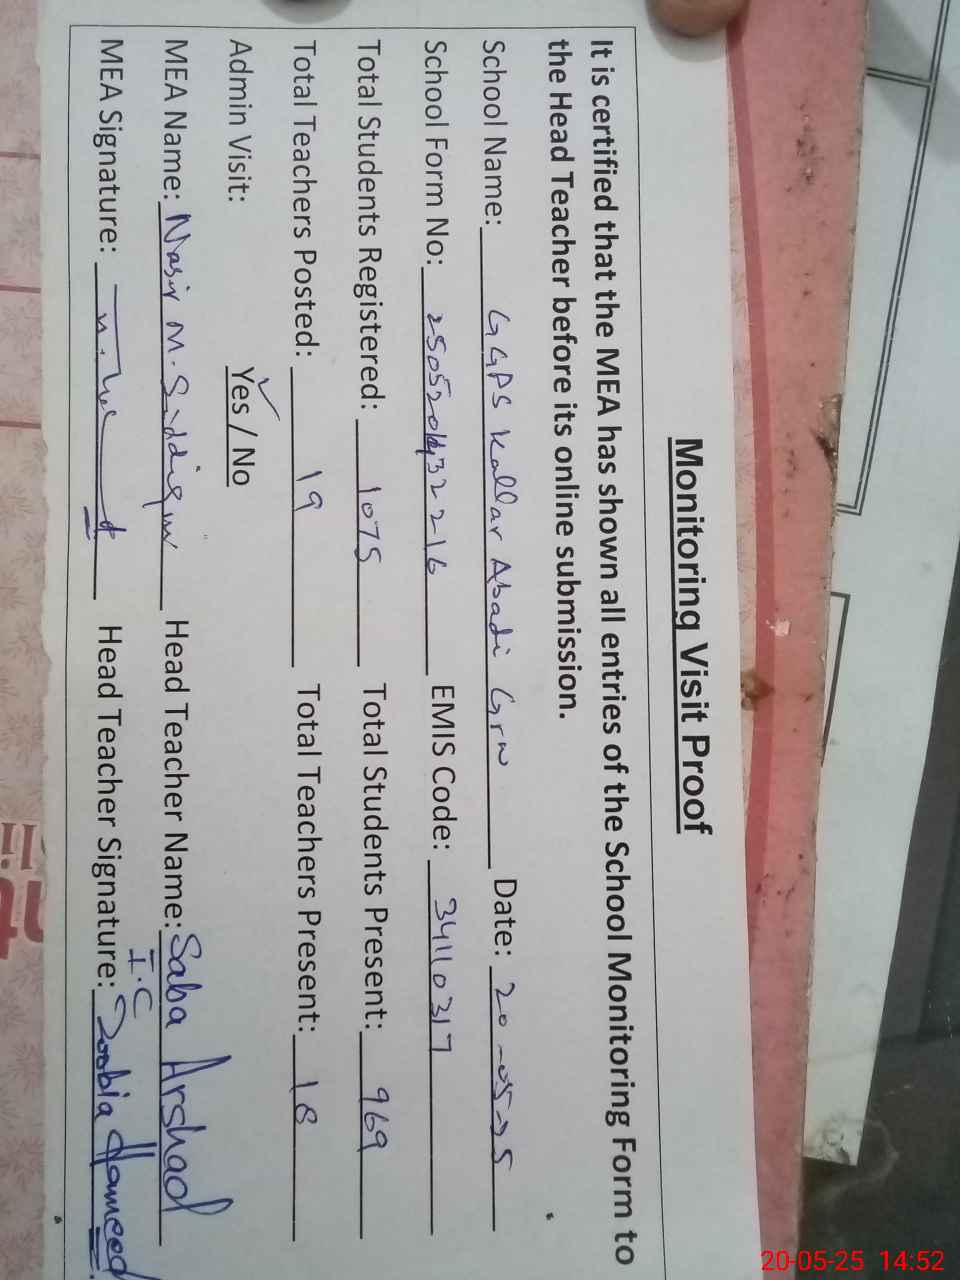 Monitoring Visit Proof
It is certified that the MEA has shown all entries of the School Monitoring Form to
the Head Teacher before its online submission.
School Name: GGPS Kallar Abadi Grw Date: 20-05-25
School Form No: EMIS Code: 34110317
Total Students Registered: 1075 Total Students Present: 969
Total Teachers Posted: 19 Total Teachers Present: 18
Admin Visit: Yes / No
MEA Name: Nasir M. Siddiqui Head Teacher Name: Saba Arshad
I.C
MEA Signature: Head Teacher Signature: Zoobia Hameed
20-05-25 14:52